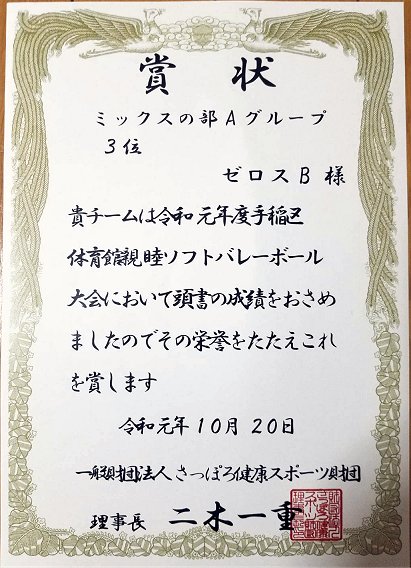 賞状
ミックスの部Aグループ
3位
ゼロスB様
貴チームは令和元年度手稲区
体育館親睦ソフトバレーボール
大会において頭書の成績をおさめ
ましたのでその栄誉をたたえこれ
を賞します
令和元年10月20日
一般財団法人さっぽろ健康スポーツ財団
理事長 二木一重